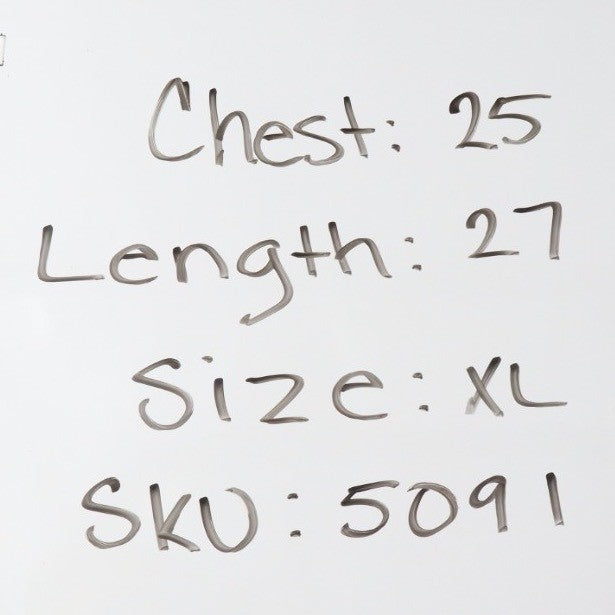 Chest: 25
Length: 27
Size: XL
SKU: 5091